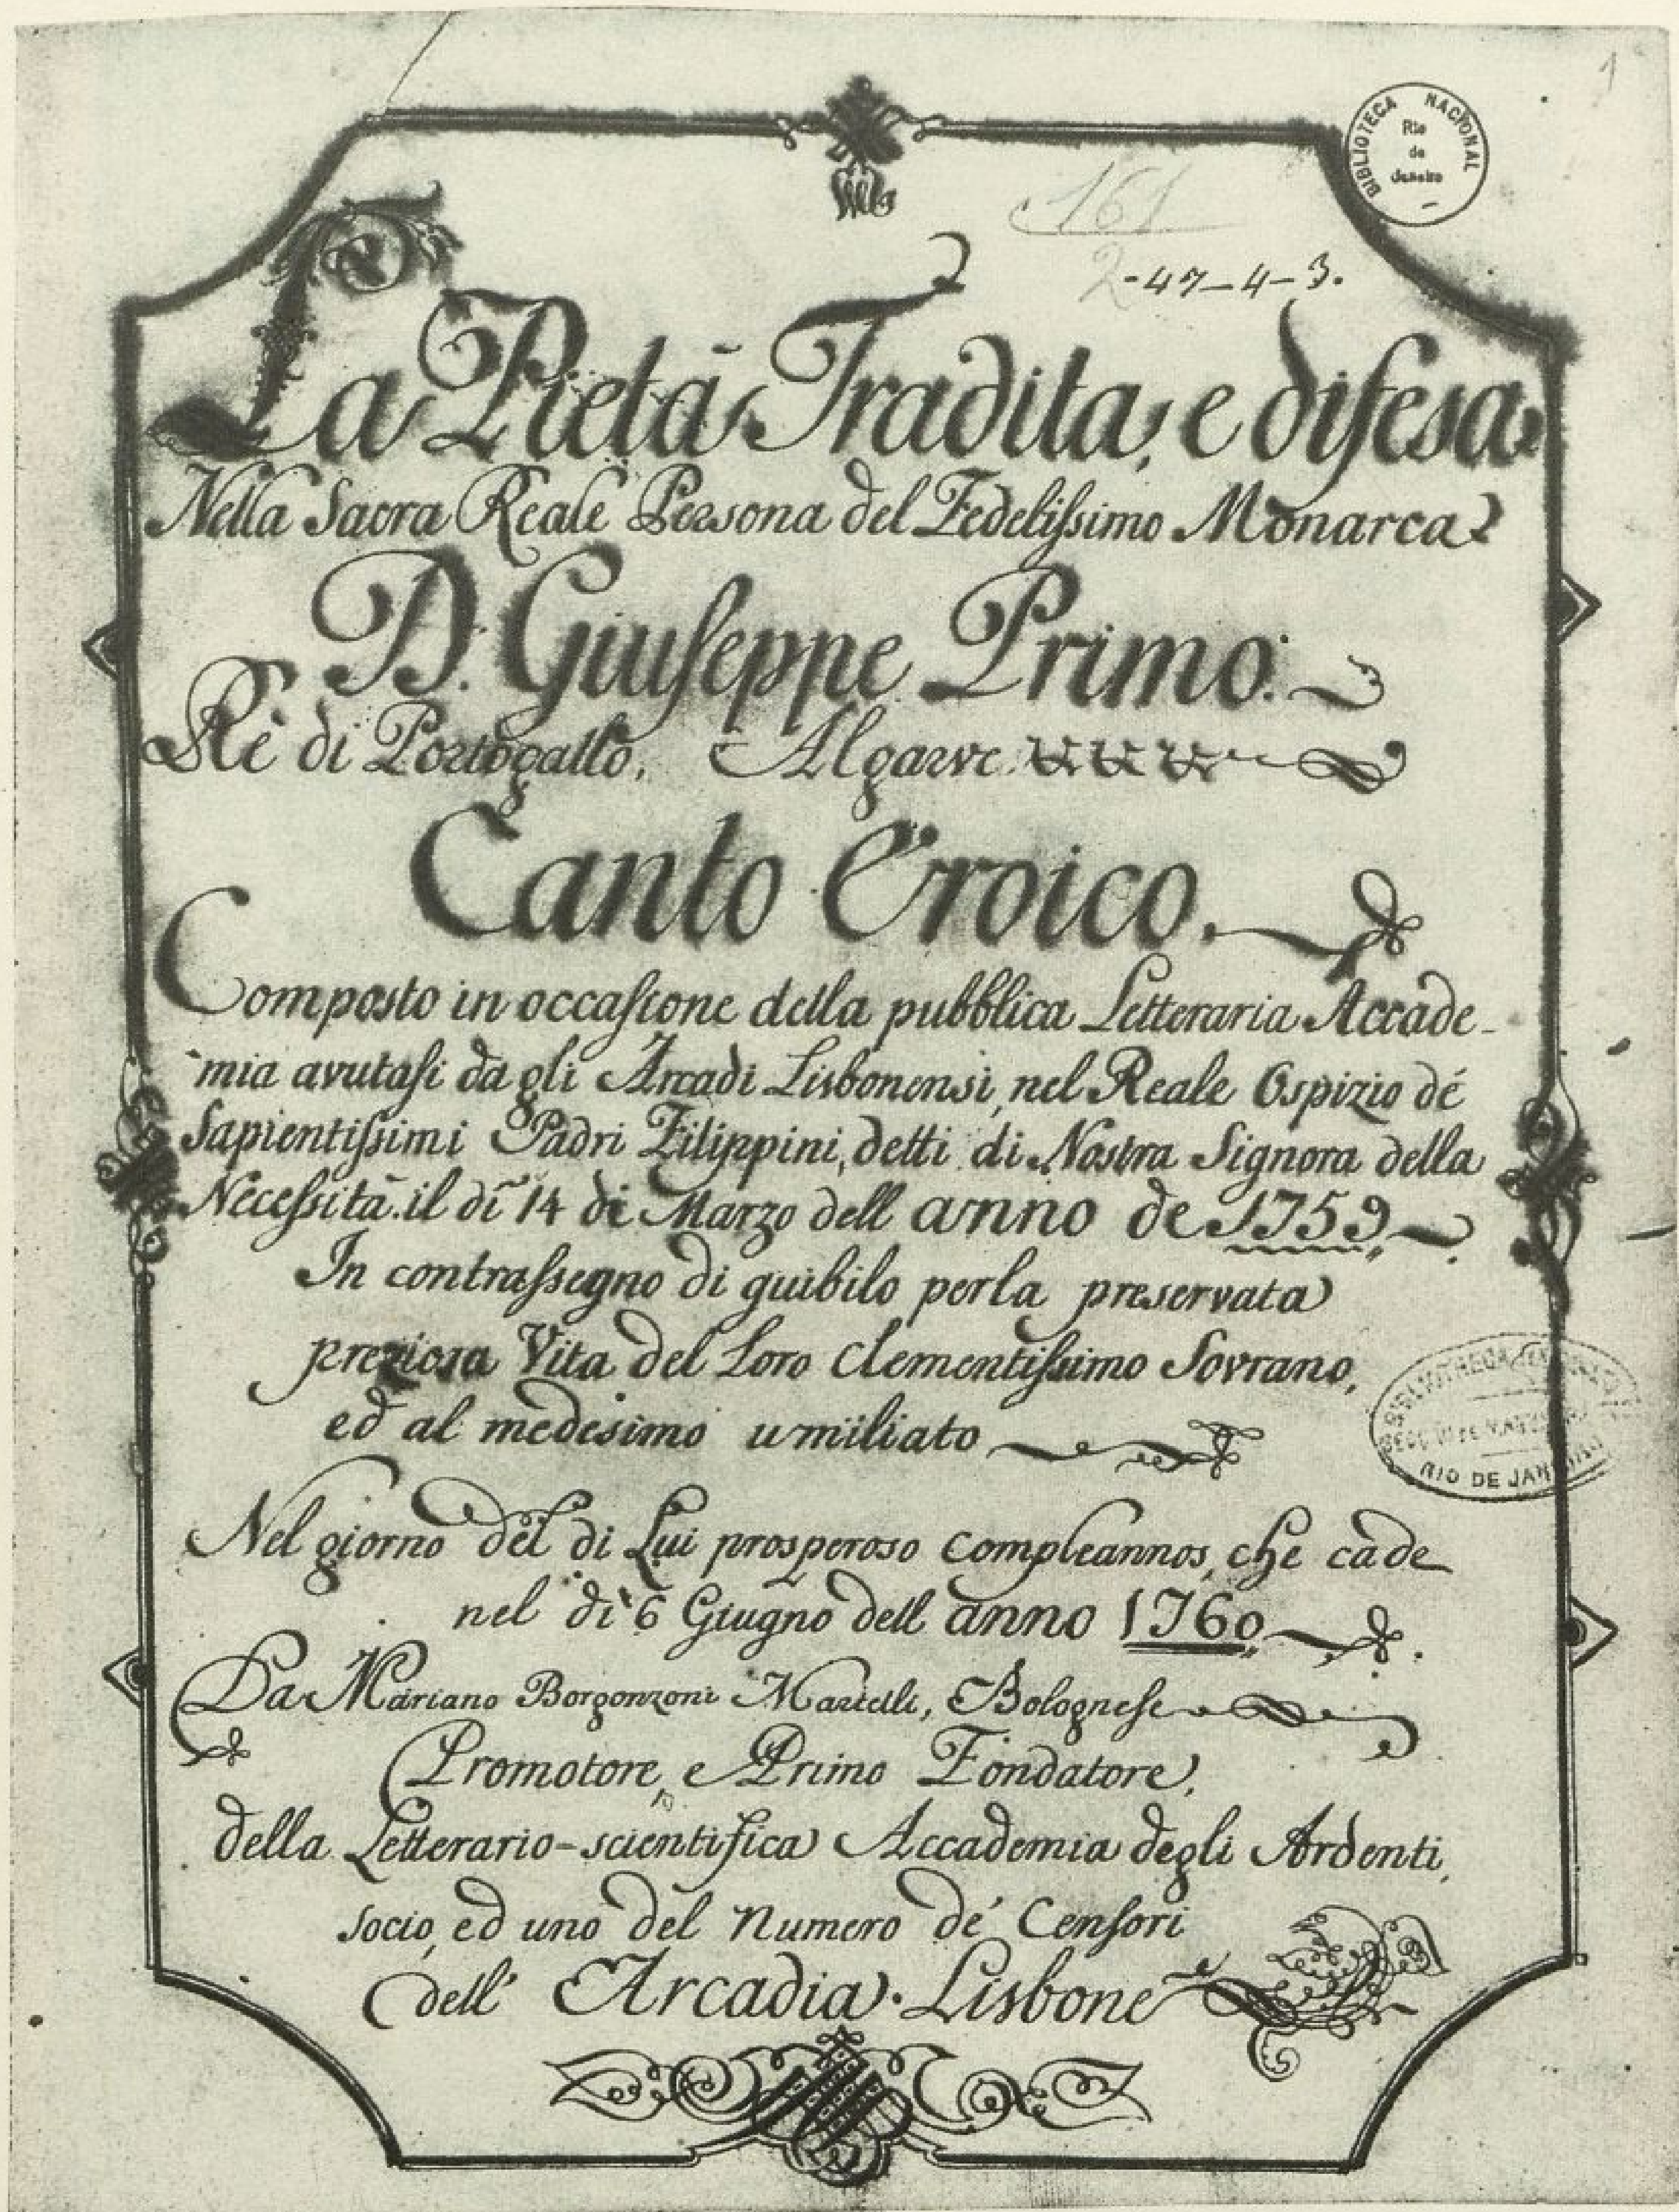 1
BIBLIOTECA NACIONAL
Rio
de
Janeiro
161
2-47-4-3.
La Pietà Tradita, e difesa
Nella Sacra Reale Persona del Fedelissimo Monarca
D. Giuseppe Primo.
Rè di Portogallo, e Algarve
Canto Eroico.
Composto in occasione della pubblica Letteraria Accade-
mia avutasi dagli Arcadi Lisbonensi, nel Reale Ospizio dé
Sapientissimi Padri Filippini, detti di Nostra Signora della
Necessità il dì 14 di Marzo dell anno de 1759,
In contrassegno di guibilo perla preservata
preziosa Vita del Loro Clementissimo Sovrano,
ed al medesimo umiliato
Nel giorno del di Lui prosperoso compleannos, che cade
nel dì 6 Giugno dell anno 1760,
Da Mariano Borgonzoni Martelli, Bolognese
Promotore, e Primo Fondatore,
della Letterario-scientifica Accademia degli Ardenti,
socio, ed uno del Numero dé Censori
dell' Arcadia Lisbone
RIO DE JANEIRO